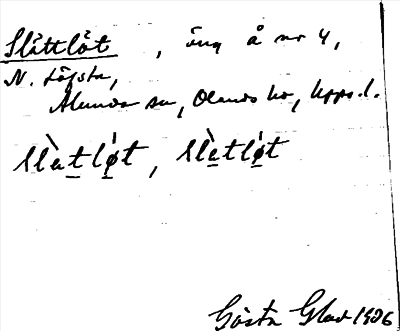 Slåttlöt, äng å nr 4,
N. Löfsta,
Alunda sn, Olands hd, Upps. l.
slàtlø̀t, slètlø̀t
Gösta Glad 1906